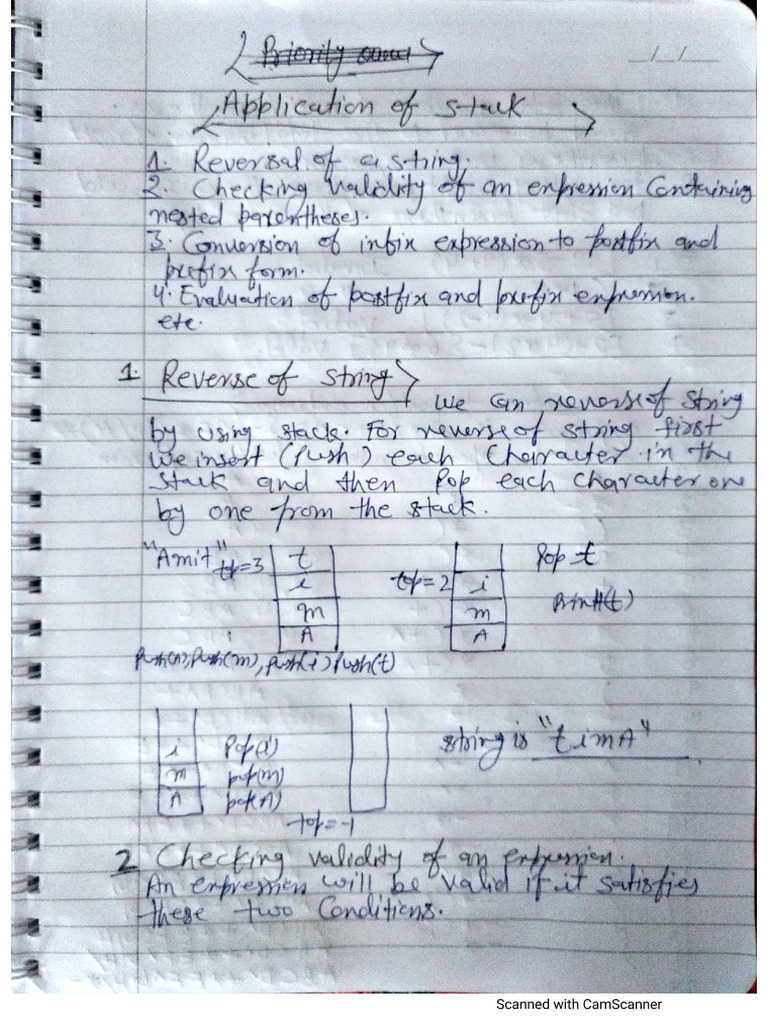 Application of stack
1. Reversal of a string.
2. Checking validity of an expression Containing
nested parentheses.
3. Conversion of infix expression to postfix and
prefix form.
4. Evaluation of postfix and prefix expression.
etc.
1. Reverse of string
we can reverse of string
by using stack. For reverse of string first
we insert (Push) each Character in the
stack and then Pop each character one
by one from the stack.
"Amit" top=3 t
i
m
A
top=2 i
m
A
Pop t
Printf(t)
Push(A), Push(m), Push(i) Push(t)
i Pop(i)
m pop(m)
A pop(A)
top=-1
string is "timA"
2 Checking validity of an expression.
An expression will be valid if it satisfies
these two Conditions.
Scanned with CamScanner